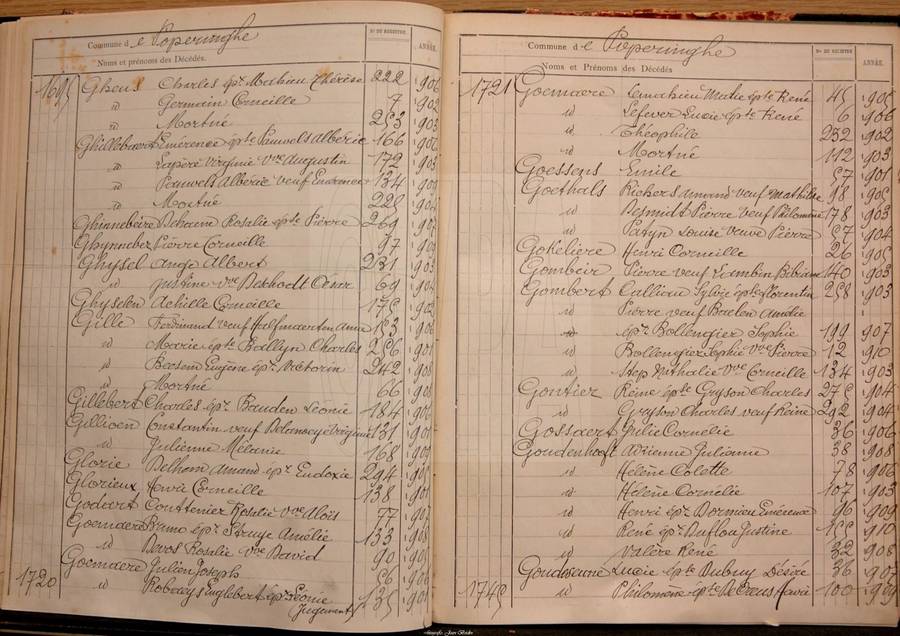 Commune de Poperinghe
Noms et prénoms des Décédés.
N° DU REGISTRE.
ANNÉE.
1695 Gheus Charles épx Mathieu Thérèse 222 1906
id Germain Corneille 7 1902
id Mortné 253 1903
Ghillebaert Emérence épte Pauwels Albéric 166 1906
id Lapere Virginie Vve Augustin 172 1903
id Pauwels Albéric veuf Emérence 134 1909
id Mortné 228 1904
Ghinnebeire Dehaene Rosalie épte Pierre 269 1907
Ghynnebez Pierre Corneille 97 1909
Ghysel Ange Albert 231 1903
id Justine Vve Dekhodt César 69 1904
Ghyselen Achille Corneille 175 1902
Gille Ferdinand veuf Halfmaerten Anna 153 1908
id Marie épte Ballyn Charles 256 1901
id Bersem Eugène épx Victorin 242 1908
id Mortné 66 1908
Gillebert Charles épx Bauden Léonie 184 1906
Gillioen Constantin veuf Delannoey Virginie 131 1901
id Julienne Mélanie 168 1909
Glorie Delhom Amand épx Eudoxie 294 1907
Glorieux Henri Corneille 138 1901
Godart Couttenier Rosalie Vve Aloïs 77 1907
Goemaere Bruno épx Struye Amélie 133 1908
id Devos Rosalie Vve David 90 1905
Goemaere Julien Joseph 56 1906
1720 id Roberey Englebert épx Léonie 135 1901
Jugement
Commune de Poperinghe
Noms et Prénoms des Décédés
N° DU REGISTRE
ANNÉE.
1721 Goemaere Lemahieu Marie épte René 45 1905
id Lefever Lucie épte René 6 1906
id Théophile 232 1902
id Mortné 112 1903
Goessens Emile 57 1901
Goethals Rickers Amand veuf Mathilde 98 1905
id Desmidt Pierre veuf Philomène 178 1903
id Patyn Louise veuve Pierre 57 1904
Gokeliere Henri Corneille 26 1905
Gombeir Pierre veuf Lambin Bibiane 140 1903
Gombert Calliau Sylvie épte Florentin 258 1903
id Pierre veuf Baelen Amélie
id épx Bollengier Sophie 199 1907
id Bollengier Sophie Vve Pierre 12 1910
id Hep Nathalie Vve Corneille 134 1903
Gontier Reine épte Gryson Charles 275 1904
id Gryson Charles veuf Reine 292 1904
Gossaert Julie Cornélie 36 1906
Goudenhooft Adrienne Julianne 38 1908
id Hélène Colette 78 1906
id Hélène Cornélie 107 1903
id Henri épx Dormieu Emérence 96 1909
id René épx Duflou Justine 155 1910
id Valère René 32 1908
Goudeseune Lucie épte Dubruy Désiré 36 1907
1745 id Philomène épte De Creus Henri 100 1909